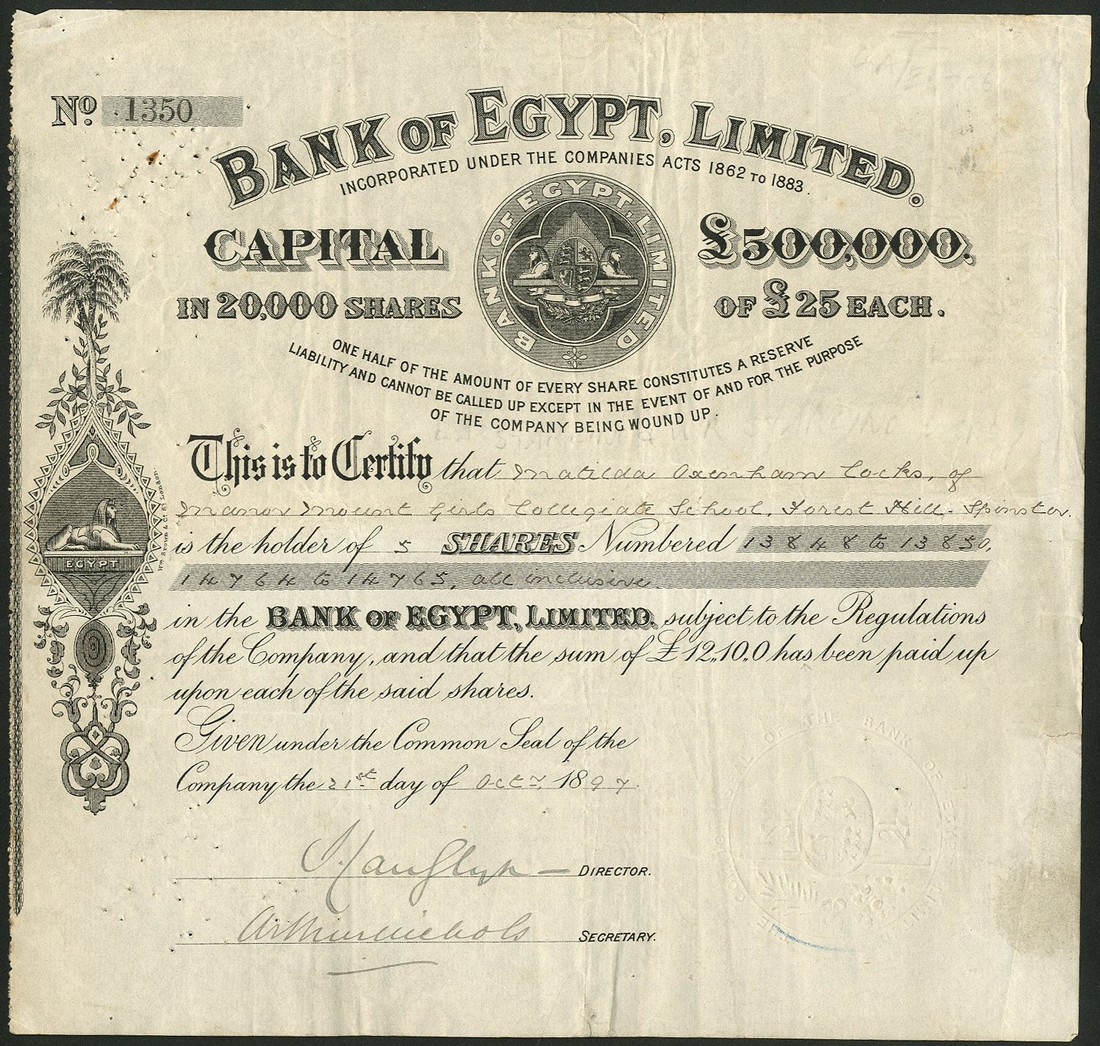 No. 1350
BANK OF EGYPT, LIMITED.
INCORPORATED UNDER THE COMPANIES ACTS 1862 TO 1883.
BANK OF EGYPT, LIMITED
CAPITAL £500,000.
IN 20,000 SHARES OF £25 EACH.
ONE HALF OF THE AMOUNT OF EVERY SHARE CONSTITUTES A RESERVE
LIABILITY AND CANNOT BE CALLED UP EXCEPT IN THE EVENT OF AND FOR THE PURPOSE
OF THE COMPANY BEING WOUND UP.
This is to Certify that Matilda Oxenham Cocks, of
Manor Mount Girls Collegiate School, Forest Hill. Spinster.
is the holder of 5 SHARES Numbered 13848 to 13850,
14764 to 14765, all inclusive
in the BANK OF EGYPT, LIMITED. subject to the Regulations
of the Company, and that the sum of £12,,10,,0 has been paid up
upon each of the said shares.
Given under the Common Seal of the
Company the 21st day of Octr. 1897.
DIRECTOR.
Arthur Nichols SECRETARY.
EGYPT